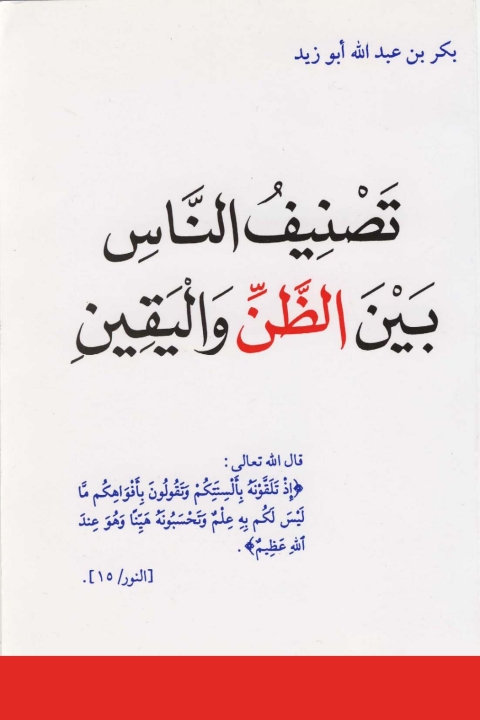 بكر بن عبد الله أبو زيد
تَصْنِيفُ النَّاسِ
بَيْنَ الظَّنِّ وَالْيَقِينِ
قال الله تعالى :
﴿إِذْ تَلَقَّوْنَهُ بِأَلْسِنَتِكُمْ وَتَقُولُونَ بِأَفْوَاهِكُم مَّا
لَيْسَ لَكُم بِهِ عِلْمٌ وَتَحْسَبُونَهُ هَيِّنًا وَهُوَ عِندَ
اللهِ عَظِيمٌ﴾ .
[النور/ ١٥].